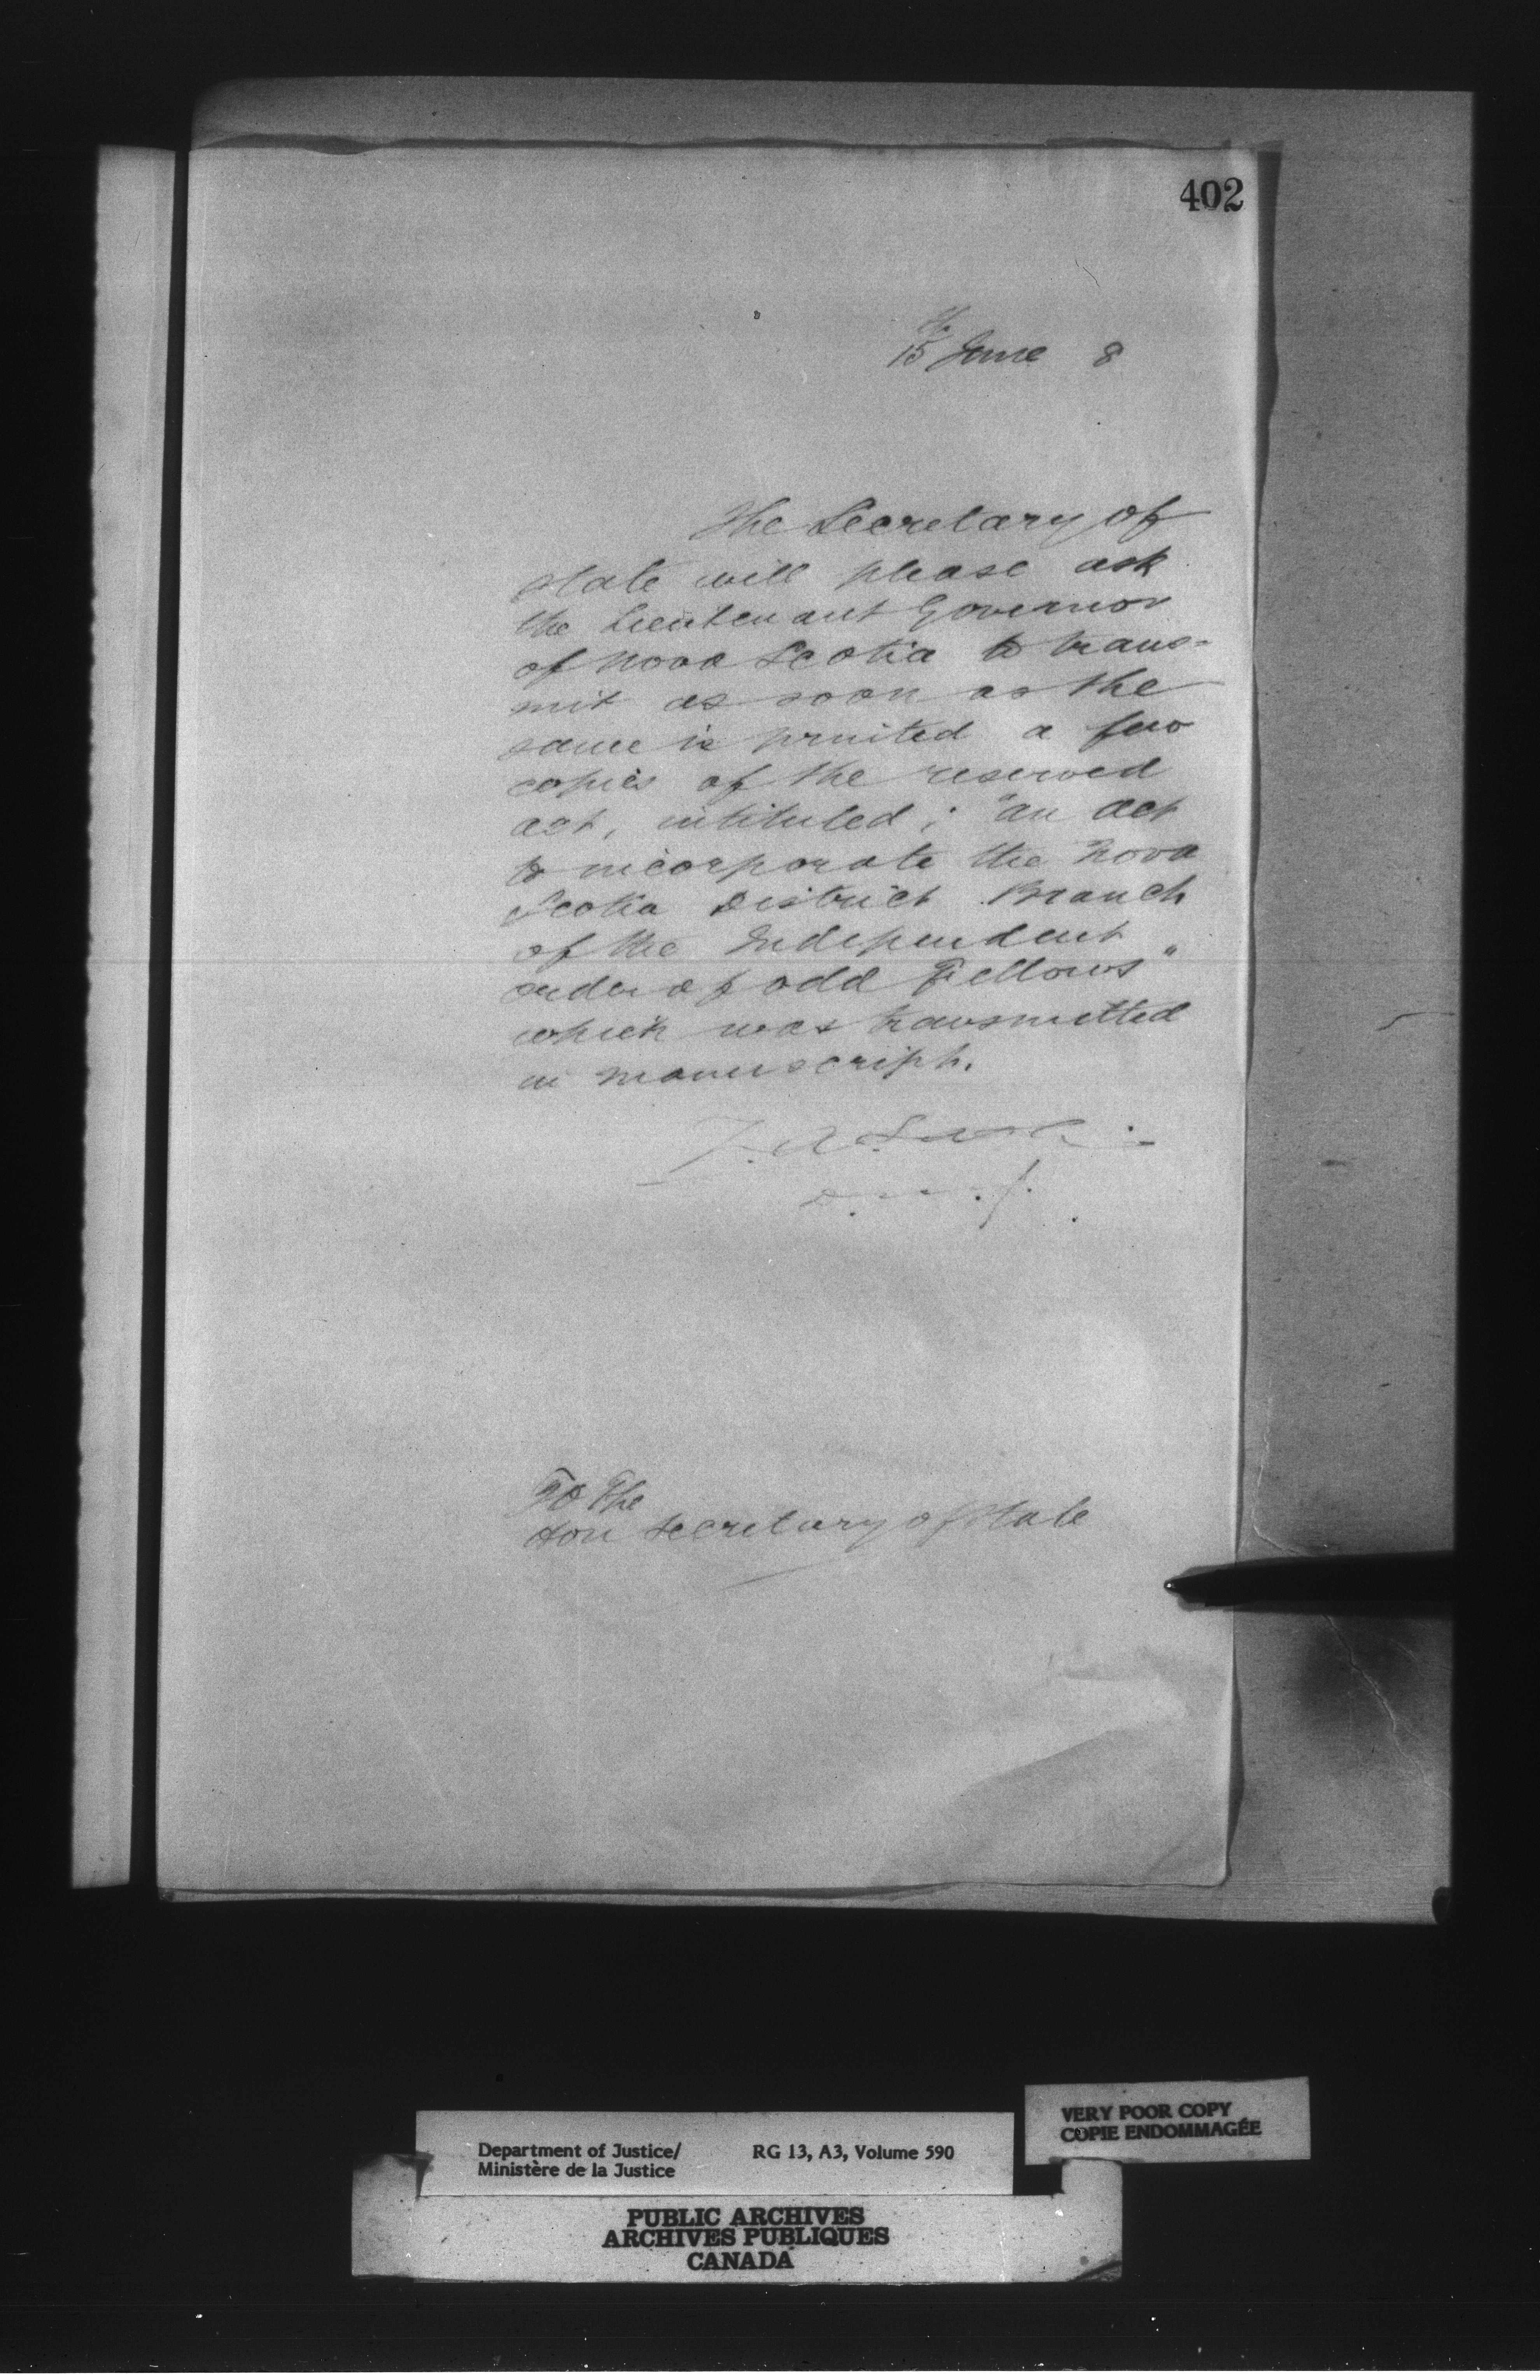 402
15th June 8
The Secretary of
state will please ask
the Lieutenant Governor
of Nova Scotia to trans=
mit as soon as the
same is printed a few
copies of the reserved
act, intituled; "an act
to incorporate the Nova
Scotia District Branch
of the Independent
order of odd Fellows"
which was transmitted
in manuscript.
D. M. J.
To The
Hon Secretary of State
VERY POOR COPY
COPIE ENDOMMAGÉE
Department of Justice/ RG 13, A3, Volume 590
Ministère de la Justice
PUBLIC ARCHIVES
ARCHIVES PUBLIQUES
CANADA